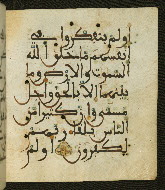 أولم يتفكروا في
أنفسهم ما خلق الله
السموت والأرض وما
بينهما إلا بالحق وأجل
مسمى وإن كثيرا من
الناس بلقاء ربهم
لكفرون أولم